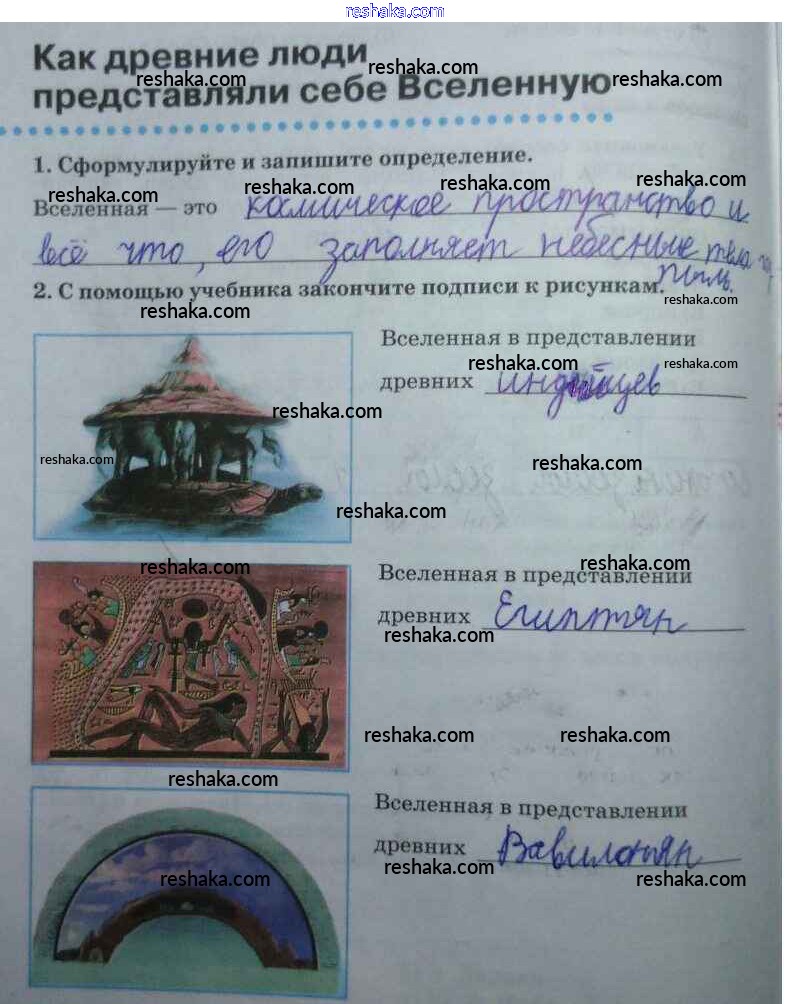 reshaka.com
Как древние люди
представляли себе Вселенную
reshaka.com reshaka.com reshaka.com
1. Сформулируйте и запишите определение.
reshaka.com reshaka.com reshaka.com reshaka.com
Вселенная — это космическое пространство и
всё что, его заполняет небесные тела газ,
пыль.
2. С помощью учебника закончите подписи к рисункам.
reshaka.com reshaka.com
Вселенная в представлении
reshaka.com reshaka.com
древних индийцев
reshaka.com
reshaka.com reshaka.com
reshaka.com
reshaka.com reshaka.com
Вселенная в представлении
древних Египтян
reshaka.com
reshaka.com reshaka.com
reshaka.com
Вселенная в представлении
древних Вавилонян
reshaka.com
reshaka.com reshaka.com